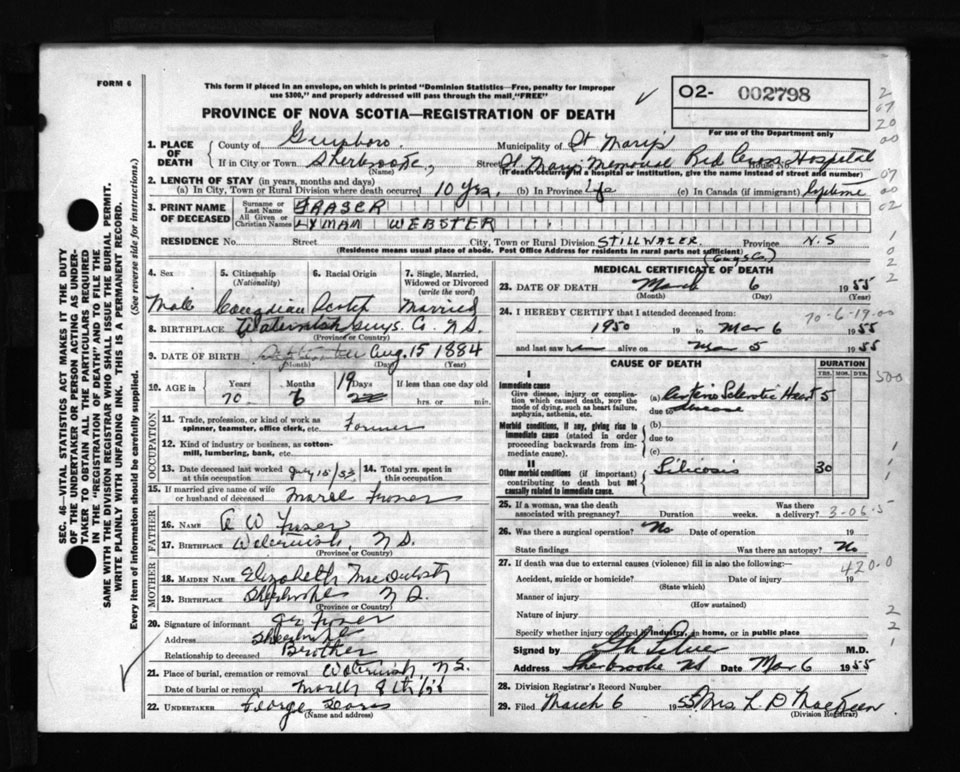 FORM 6
This form if placed in an envelope, on which is printed "Dominion Statistics—Free, penalty for improper
use $300," and properly addressed will pass through the mail, "FREE"
O2- 002798
PROVINCE OF NOVA SCOTIA—REGISTRATION OF DEATH
For use of the Department only
SEC. 46—VITAL STATISTICS ACT MAKES IT THE DUTY
OF THE UNDERTAKER OR PERSON ACTING AS UNDERTAKER TO OBTAIN ALL THE PARTICULARS REQUIRED
IN THE "REGISTRATION OF DEATH" AND TO FILE THE
SAME WITH THE DIVISION REGISTRAR WHO SHALL ISSUE THE BURIAL PERMIT.
WRITE PLAINLY WITH UNFADING INK. THIS IS A PERMANENT RECORD.
Every item of information should be carefully supplied. (See reverse side for instructions.)
1. PLACE OF DEATH County of Municipality of St Mary's
If in City or Town Sherbrooke, (Name) Street St Marys Memorial Red Cross Hospital House No.
(If death occurred in a hospital or institution, give the name instead of street and number)
2. LENGTH OF STAY (in years, months and days)
(a) In City, Town or Rural Division where death occurred 10 Yrs. (b) In Province Life (c) In Canada (if immigrant) Lifetime
3. PRINT NAME OF DECEASED Surname or Last Name FRASER
All Given or Christian Names LYMAN WEBSTER
RESIDENCE No. Street City, Town or Rural Division STILLWATER Province N.S
(Residence means usual place of abode. Post Office Address for residents in rural parts not sufficient)
(Guys Co.)
4. Sex 5. Citizenship (Nationality) 6. Racial Origin 7. Single, Married, Widowed or Divorced (write the word)
Male Canadian Scotch Married
8. BIRTHPLACE Guys. Co. N.S.
(Province or Country)
9. DATE OF BIRTH Aug. 15 1884
(Month) (Day) (Year)
10. AGE in Years Months Days If less than one day old
70 6 19 hrs. or min.
OCCUPATION
11. Trade, profession, or kind of work as
spinner, teamster, office clerk, etc. Farmer
12. Kind of industry or business, as cotton-
mill, lumbering, bank, etc.
13. Date deceased last worked at this occupation 15/53 14. Total yrs. spent in this occupation
15. If married give name of wife
or husband of deceased Fraser
FATHER
16. NAME W Fraser
17. BIRTHPLACE N.S.
(Province or Country)
MOTHER
18. MAIDEN NAME Elizabeth
19. BIRTHPLACE Sherbrooke N S.
(Province or Country)
20. Signature of informant Fraser
Address Sherbrooke
Relationship to deceased Brother
21. Place of burial, cremation or removal N.S.
Date of burial or removal March 8th/55
22. UNDERTAKER George
(Name and address)
MEDICAL CERTIFICATE OF DEATH
23. DATE OF DEATH March 6 1955
(Month) (Day) (Year)
24. I HEREBY CERTIFY that I attended deceased from:
70-6-19-00
1950 19 to Mar 6 1955
and last saw him alive on Mar 5 1955
CAUSE OF DEATH DURATION
YRS. MOS. DYS.
I
Immediate cause
Give disease, injury or complication which caused death, not the mode of dying, such as heart failure, asphyxia, asthenia, etc.
(a) Arterio Sclerotic Heart 5
due to disease
Morbid conditions, if any, giving rise to immediate cause (stated in order proceeding backwards from immediate cause).
(b)
due to
(c)
II
Other morbid conditions (if important) contributing to death but not causally related to immediate cause.
Silicosis 30
25. If a woman, was the death associated with pregnancy? Duration weeks. Was there a delivery?
26. Was there a surgical operation? No Date of operation 19
State findings Was there an autopsy? No
27. If death was due to external causes (violence) fill in also the following:—
420-0
Accident, suicide or homicide? Date of injury 19
(State which)
Manner of injury
(How sustained)
Nature of injury
Specify whether injury occurred in industry, in home, or in public place
Signed by M.D.
Address Sherbrooke NS Date Mar 6 1955
28. Division Registrar's Record Number
29. Filed March 6 1955 Mrs. L. D MacKeen
(Division Registrar)